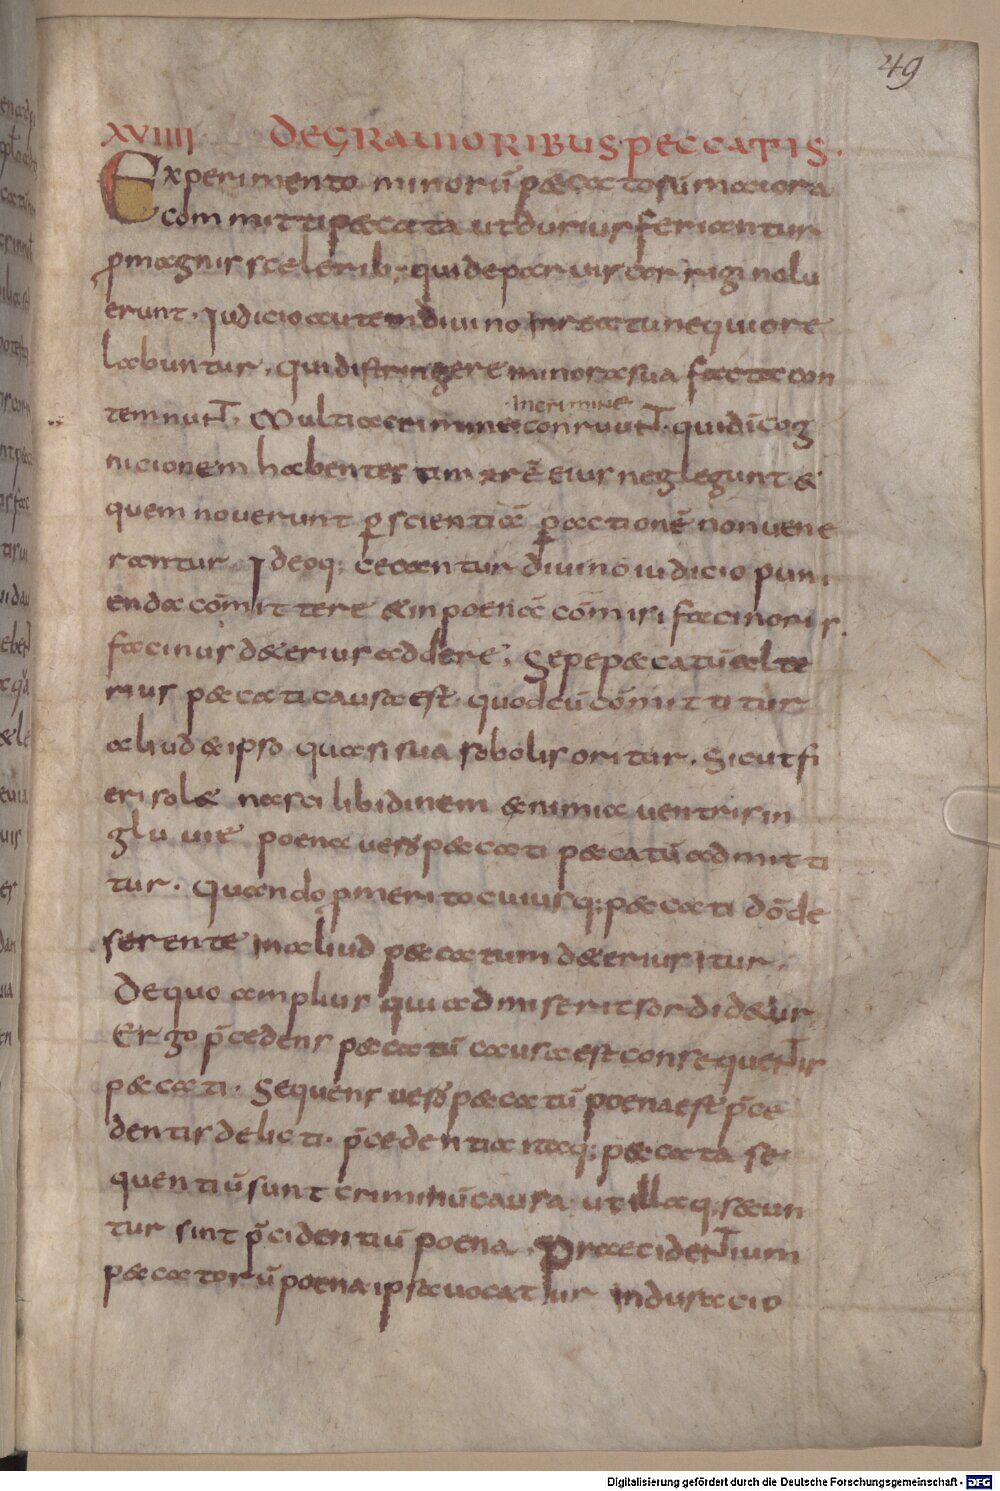 49
XVIIII DEGRAUIORIBUS PECCATIS.
Experimento minorū peccatosū maiora
committi peccata ut durius feriantur
p magnis sceleribꝫ qui de parvis corrigi nolu
erunt. Iudicio autem divino in reatu nequiore
labuntur, qui distringere minora sua facta con
temnunt. Multi a crimine conruunt. qui dī cog
in crimine
nicionem habentes timorē eius neglegunt &
quem noverunt p scientiā p actionē non vene
rantur. Ideoq; cecantur divino iudicio puni
enda cōmittere & in poenā cōmisi facinoris
facinus deterius addere, Sepe peccatū alte
rius peccati causa est. quod cū cōmittitur
aliud & ipso quasi sua sobolis oritur. Sicut fi
eri sol& nasci libidinem & nimia ventris in
gluvie poena vero peccati peccatū admitti
tur. Quando p merito cuiusq; peccati dō de
serente in aliud peccatum deterius itur.
De quo amplius qui admiserit sordid&ur
Ergo p̄cedens peccatū causa est consequentis
peccati. Sequens vero peccatū poena est p̄ce
dentis delicti. p̄cedentia itaq; peccata se
quentiū sunt criminū causa ut illaq; secun
tur sint p̄cidentiū poena. Praecidentium
peccatorū poena ipsa vocatur induracio
Digitalisierung gefördert durch die Deutsche Forschungsgemeinschaft - DFG